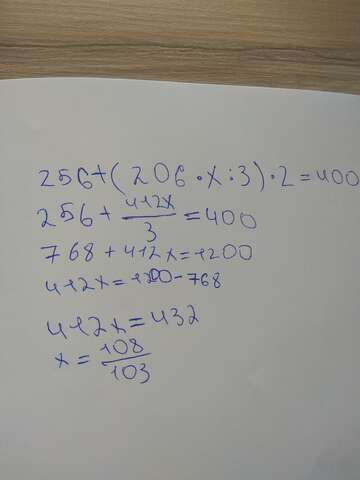 256+(206·x:3)·2=400
256+412x/3=400
768+412x=1200
412x=1200-768
412x=432
x=108/103